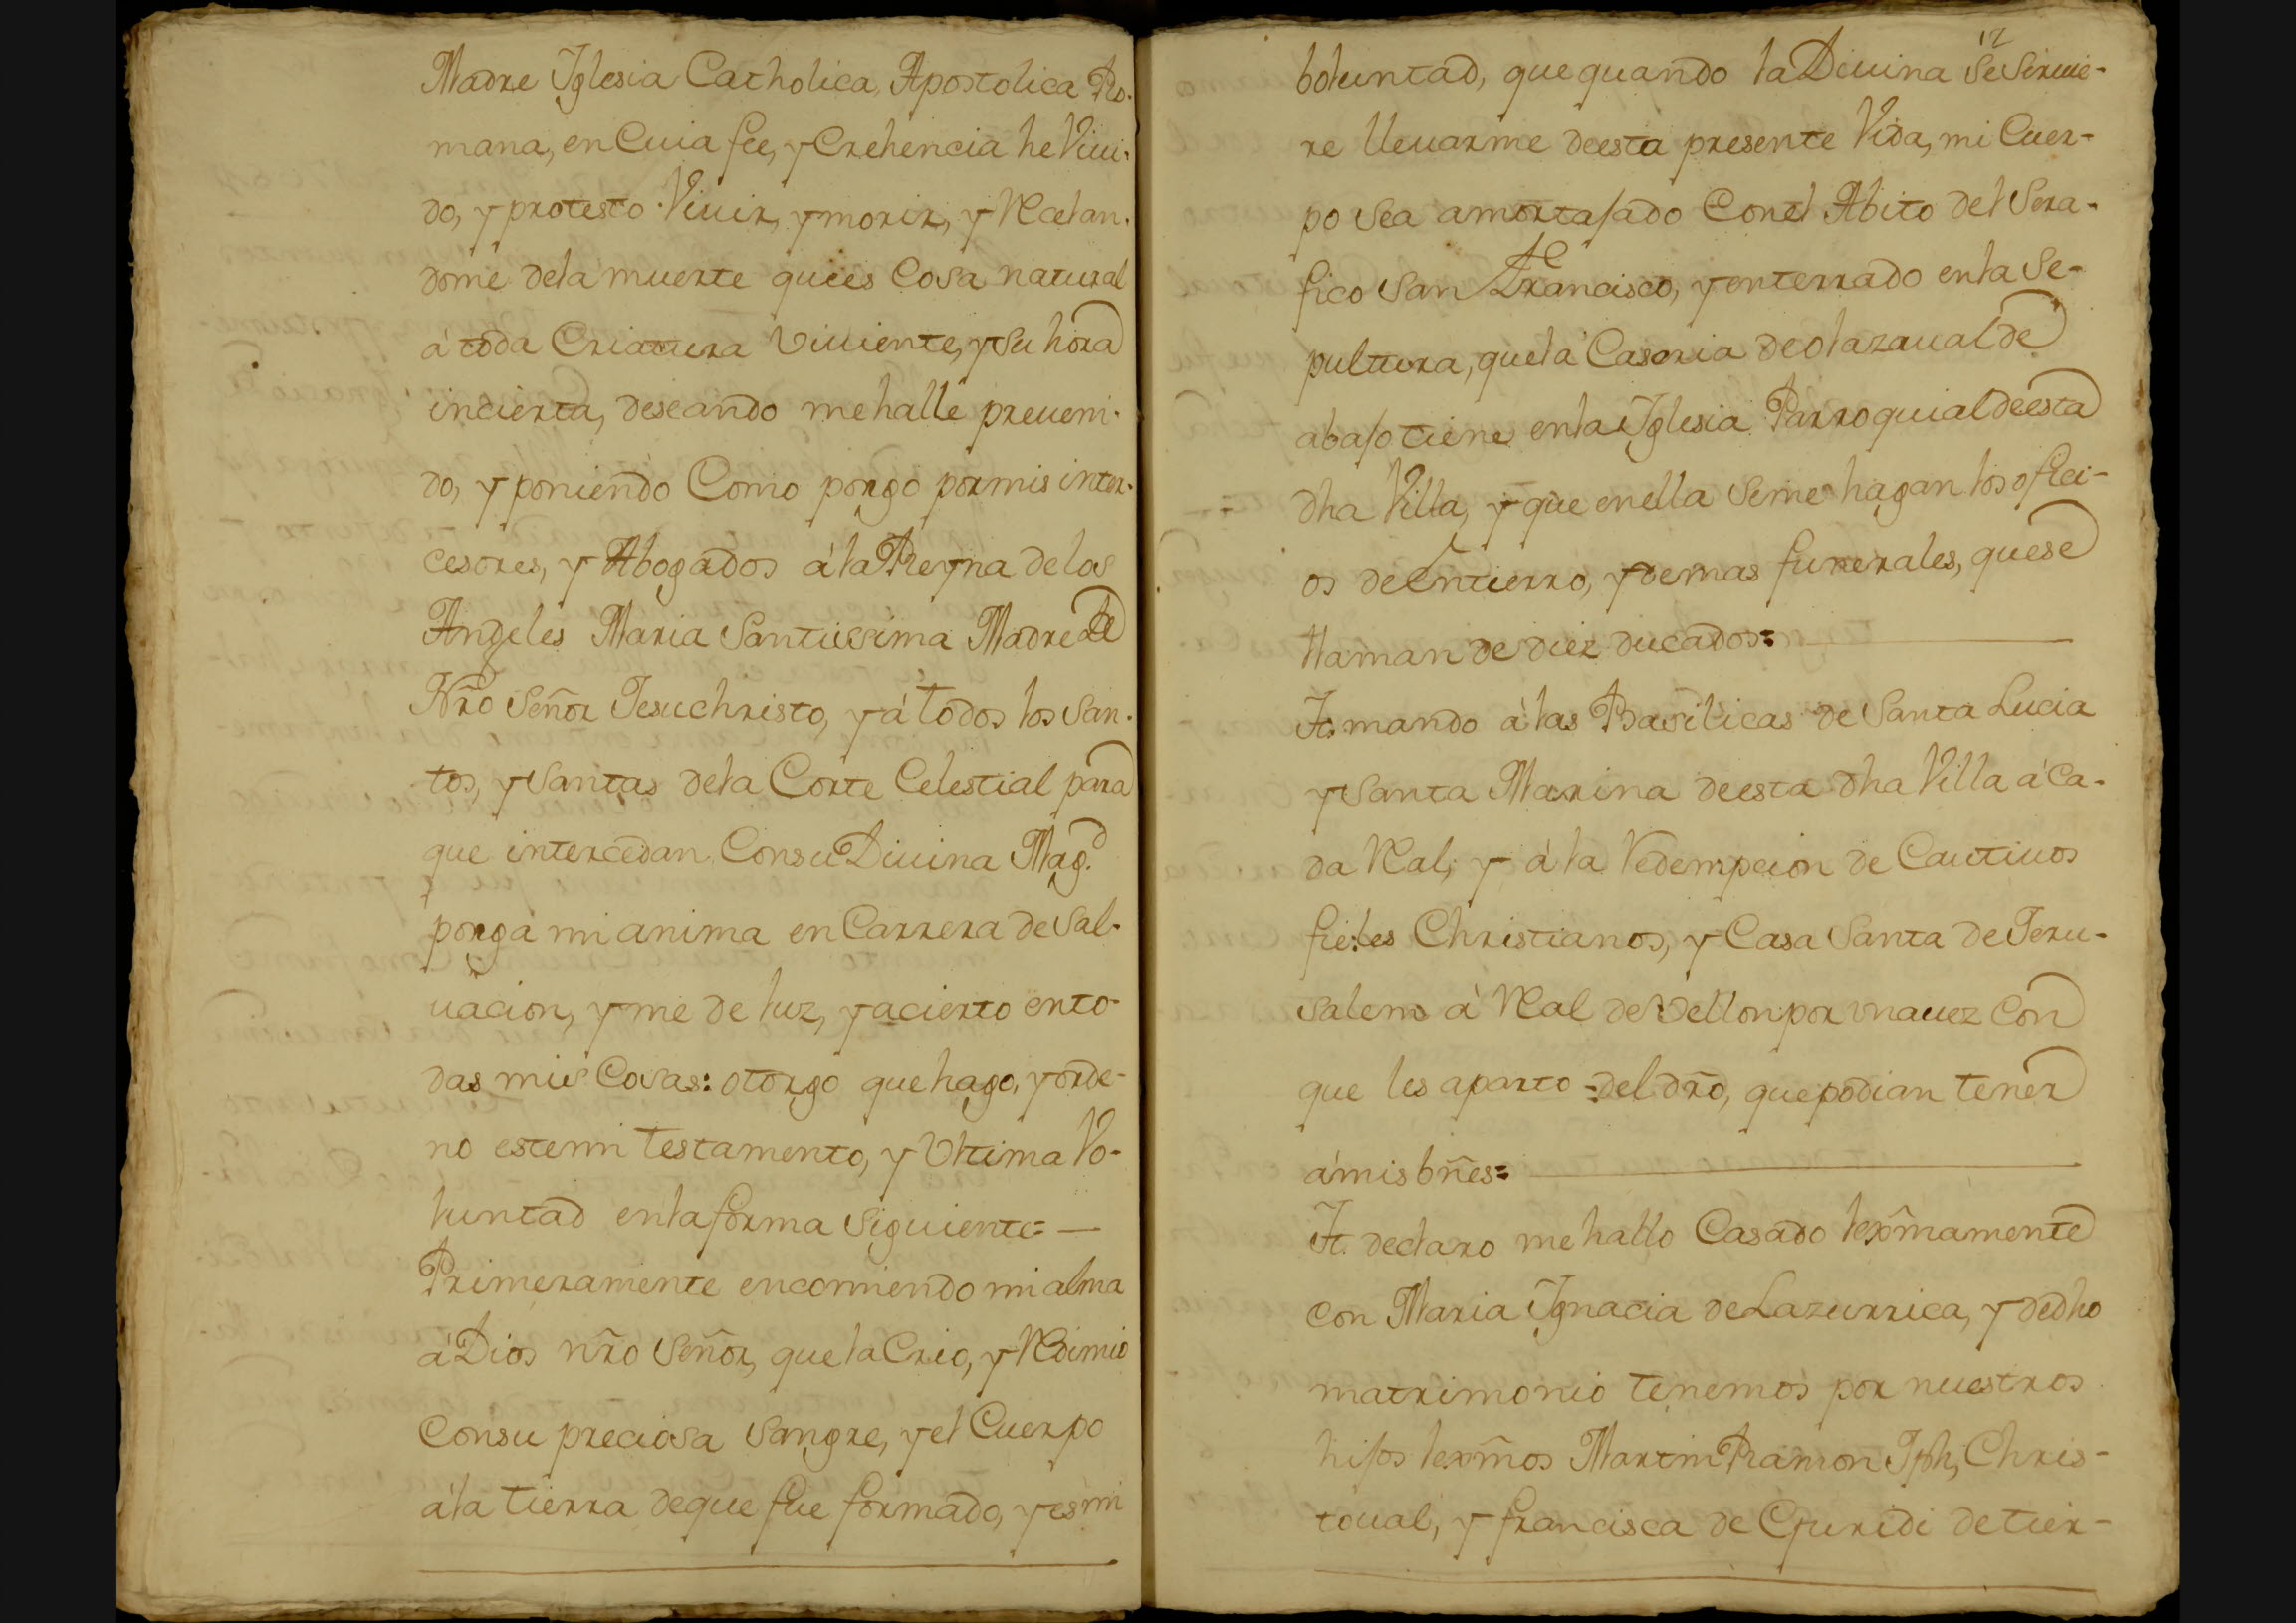 Madre Iglesia Catholica, Apostolica Ro-
mana, en Cuia fee, y Crehencia he Viui-
do, y protesto Viuir, y morir, y Recelan-
dome dela muerte que es Cosa natural
à toda Criatura Viuiente, y su hora
incierta, deseando me halle preueni-
do, y poniendo Como pongo por mis inter-
cesores, y Abogados à la Reyna de los
Angeles Maria Santissima Madre de
Nr̃o Señor Jesuchristo, y à todos los San-
tos, y Santas dela Corte Celestial para
que intercedan Con su Diuina Magd.
ponga mi anima en Carrera de Sal-
uacion, y me de luz, y acierto en to-
das mis Cosas: otorgo que hago, y orde-
no este mi testamento, y Vltima Vo-
luntad en la forma Siguiente= —
Primeramente encomiendo mi alma
à Dios nr̃o Señor, que la Crio, y Redimio
Con su preciosa Sangre, y el Cuerpo
à la tierra de que fue formado, y es mi
12
boluntad, que quando la Diuina Se Siruie-
re lleuarme de esta presente Vida, mi Cuer-
po Sea amortajado Con el Abito del Sera-
fico San Francisco, y enterrado en la Se-
pultura, que la Caseria de olazaualde
abajo tiene en la Iglesia Parroquial de esta
dha Villa, y que en ella Se me hagan los ofici-
os de Entierro, y demas funerales, que se
llaman de diez ducados=
It. mando à las Basilicas de Santa Lucia
y Santa Marina de esta dha Villa à Ca-
da Real, y à la Redempcion de Cautiuos
fieles Christianos, y Casa Santa de Jeru-
salem à Real de Vellon por una uez Con
que les aparto del dr̃o, que podian tener
à mis bñes=
It. declaro me hallo Casado lexm̃amente
con Maria Ignacia de Lazurrica, y de dho
matrimonio tenemos por nuestros
hijos lexm̃os Martin Ramon Jph, Chris-
toual, y francisca de Eguridi de tier-